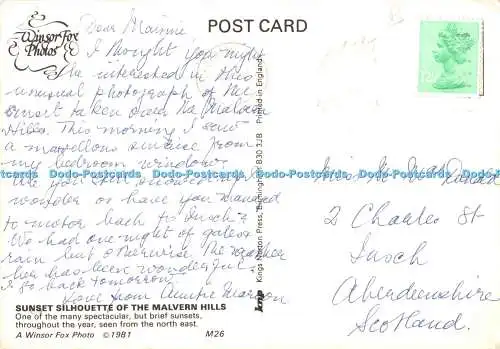 Winsor Fox
Photos
POST CARD
Dear Mamie
I thought you might
be interested in this
unusual photograph of the
sunset taken over the Malvern
Hills. This morning I saw
a marvellous sunrise from
my bedroom window.
Are you still I
wonder or have you managed
to motor back to Insch?
We had one night of gales &
rain but otherwise the weather
here has been wonderful.
I go back tomorrow.
Love from Auntie Marion
SUNSET SILHOUETTE OF THE MALVERN HILLS
One of the many spectacular, but brief sunsets,
throughout the year, seen from the north east.
A Winsor Fox Photo ©1981 M26
Printed in England
Kings Norton Press, Birmingham B30 3JB
knp
12½P
Miss M. McDonald
2 Charles St
Insch
Aberdeenshire
Scotland.
Dodo-Postcards Dodo-Postcards Dodo-Postcards Dodo-Postcards Dodo-Postcards Dodo-Postcards